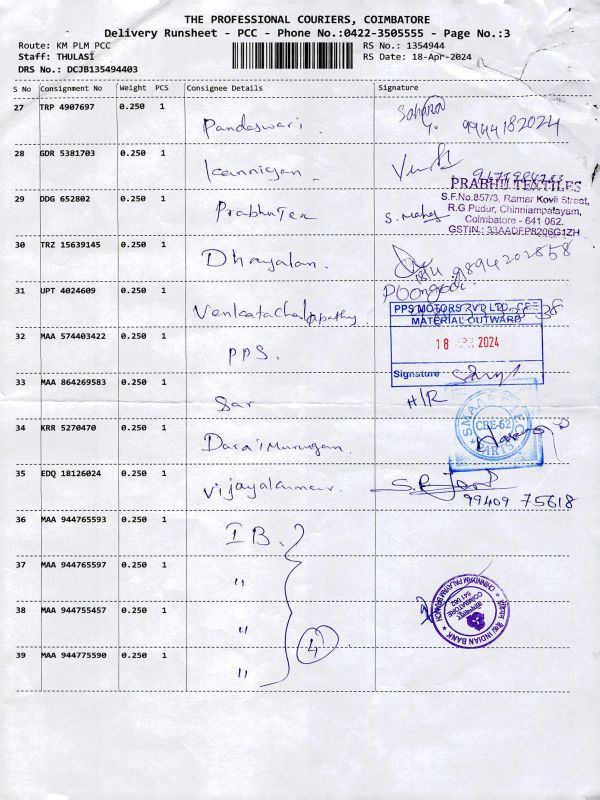 THE PROFESSIONAL COURIERS, COIMBATORE
Delivery Runsheet - PCC - Phone No.:0422-3505555 - Page No.:3
Route: KM PLM PCC RS No.: 1354944
Staff: THULASI RS Date: 18-Apr-2024
DRS No.: DCJB135494403
S No Consignment No Weight PCS Consignee Details Signature
27 TRP 4907697 0.250 1 Pandeswari. 9944182024
28 GDR 5381703 0.250 1 Kannigan
29 DDG 652802 0.250 1 PrabhuTex
PRABHU TEXTILES
S.F.No.857/3, Ramar Kovil Street,
R.G Pudur, Chinniampalayam,
Coimbatore - 641 062.
GSTIN : 33AADFP8206G1ZH
30 TRZ 15639145 0.250 1 Dhayalan. 9894202858
31 UPT 4024609 0.250 1 Venkatachalapathy Poongodi
32 MAA 574403422 0.250 1 PPS.
PPS MOTORS PVT LTD, CBE
MATERIAL OUTWARD
18 APR 2024
Signature
33 MAA 864269583 0.250 1 Sar H/R
34 KRR 5270470 0.250 1 Doraimurugan.
CBE-62
35 EDQ 18126024 0.250 1 Vijayakumar 99409 75618
36 MAA 944765593 0.250 1 IB.
37 MAA 944765597 0.250 1 "
38 MAA 944755457 0.250 1 "
39 MAA 944775590 0.250 1 "
4
INDIAN BANK
CHINNIYAM PALAYAM BRANCH
COIMBATORE
641 062